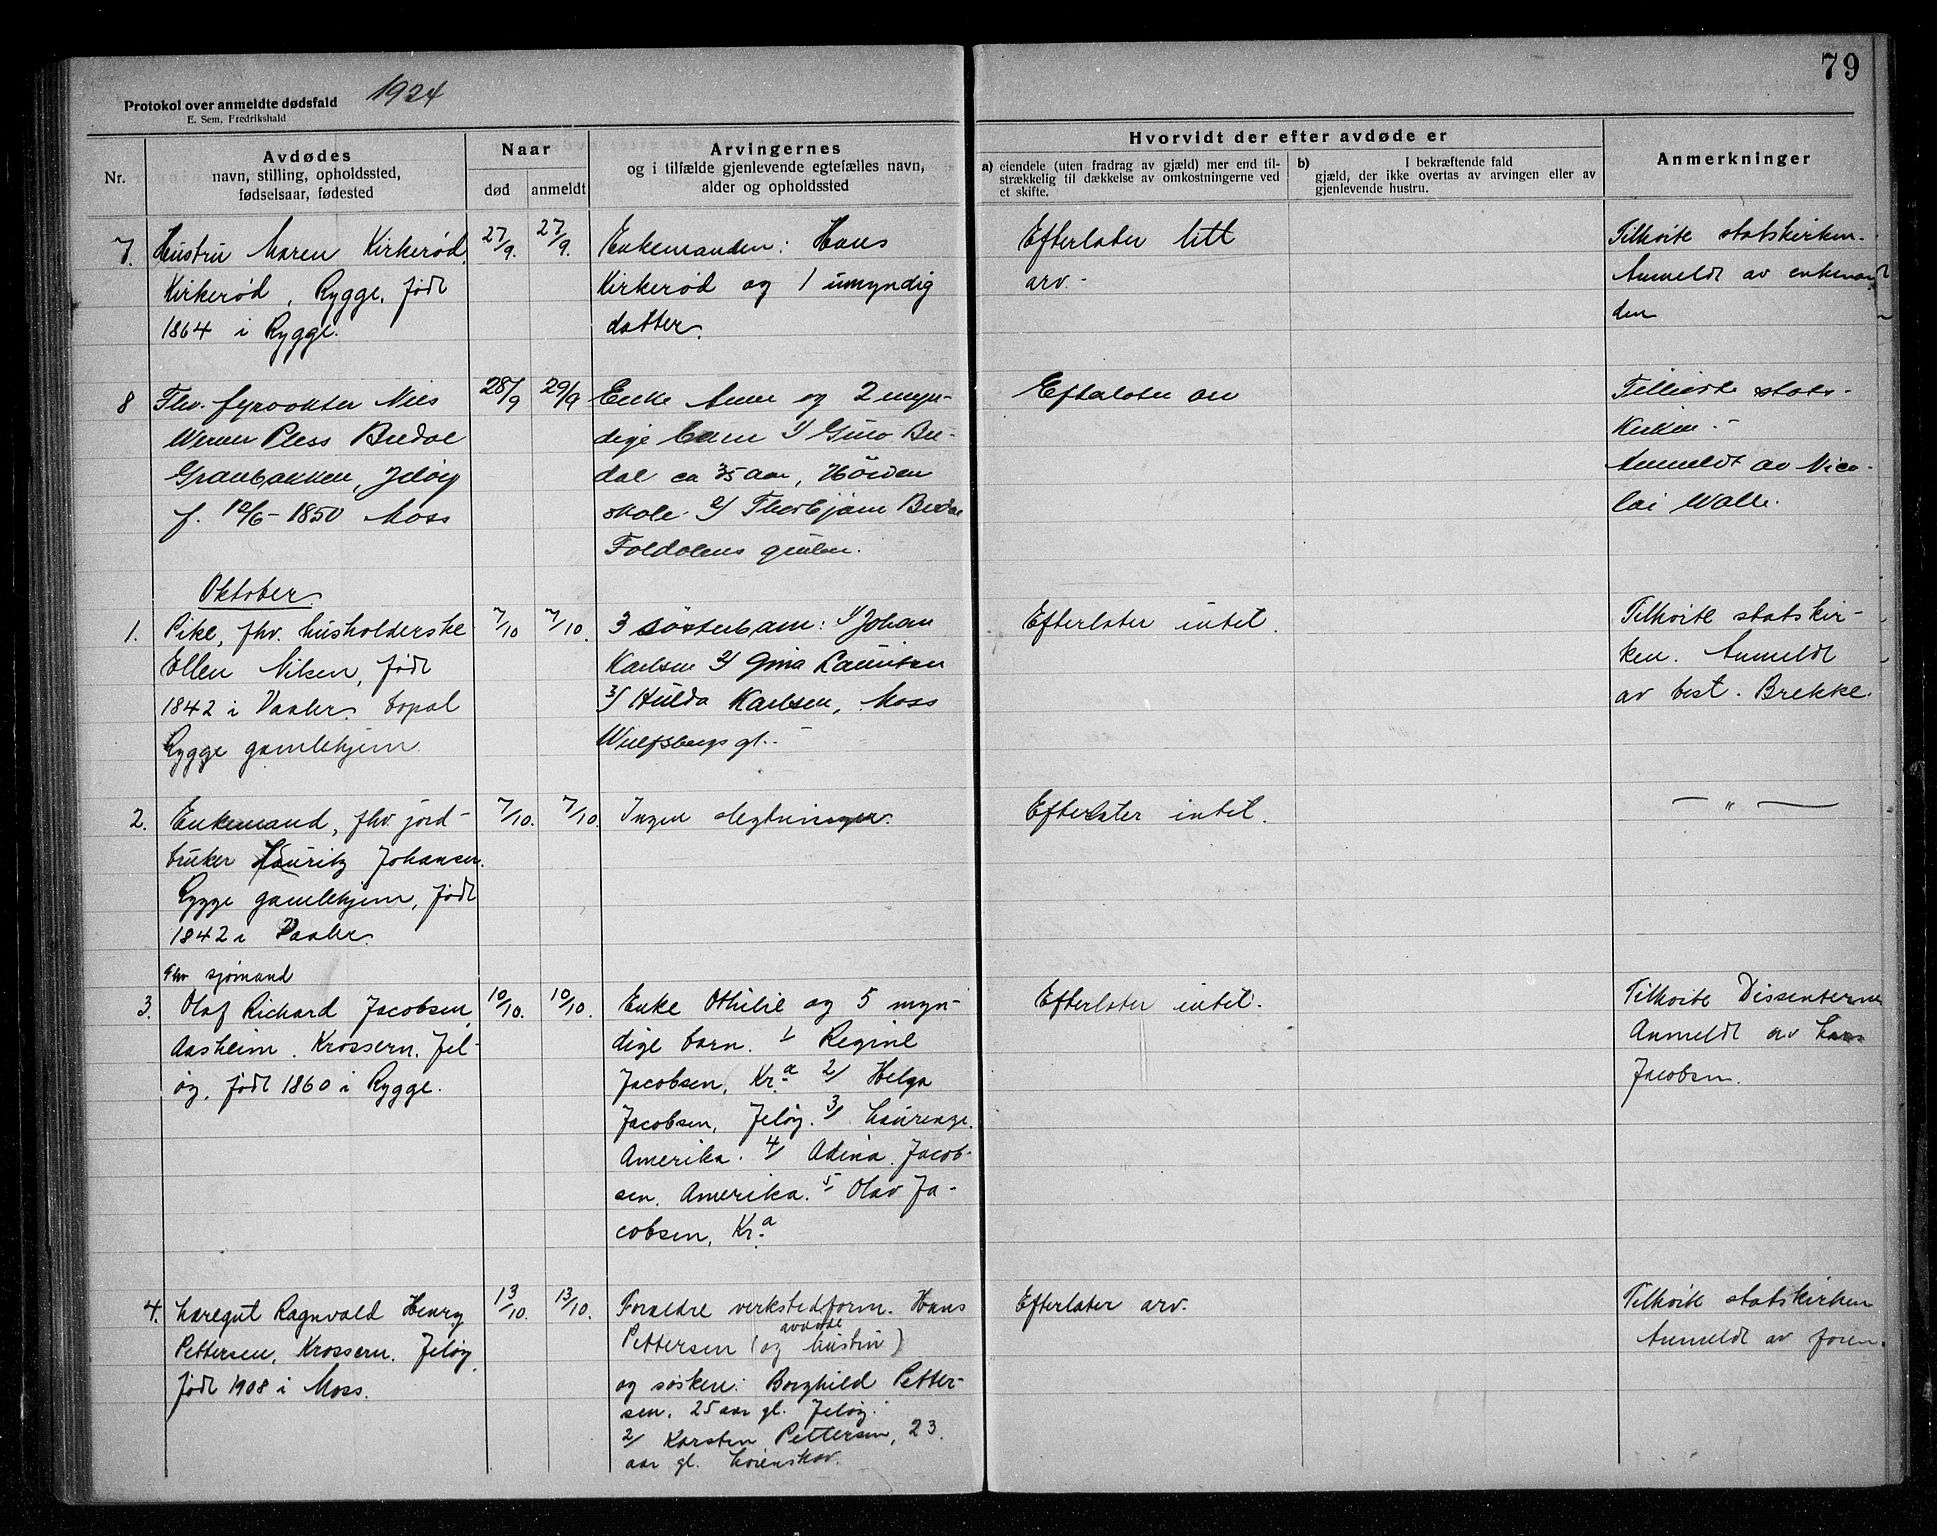 79
1924
Protokol over anmeldte dødsfald
E. Sem, Fredrikshald
Nr.
Avdødes
navn, stilling, opholdssted,
fødselsaar, fødested
Naar
død
anmeldt
Arvingernes
og i tilfælde gjenlevende egtefælles navn,
alder og opholdssted
Hvorvidt der efter avdøde er
a) eiendele (uten fradrag av gjæld) mer end til-
strækkelig til dækkelse av omkostningerne ved
et skifte.
b) I bekræftende fald
gjæld, der ikke overtas av arvingen eller av
gjenlevende hustru.
Anmerkninger
7.
Hustru Maren Kirkerød,
Kirkerød, Rygge, født
1864 i Rygge.
27/9.
27/9.
Enkemanden: Hans
Kirkerød og 1 umyndig
datter.
Efterlater litt
arv.
Tilhørte statskirken.
Anmeldt av enkeman
den
8
Fhv. fyrvokter Nils
Werner Pless Bredal
Granbakken, Jeløy
f. 12/6-1850 Moss
28/9
29/9
Enke Anne og 2 myn-
dige barn 1/ Gino Bre-
dal ca 35 aar, Hörden
skole 2/ Thorbjørn Bredal
Foldalens gruber.
Efterlater arv
Tilhørte stats-
kirken.-
Anmeldt av Nico-
lai Walle.
Oktober.
1.
Pike, fhv. husholderske
Ellen Nilsen, født
1842 i Vaaler. bopæl
Rygge gamlehjem
7/10
7/10.
3 søsterbarn: 1/ Johan
Karlsen 2/ Gina Lauritsen
3/ Hulda Karlsen, Moss
Wulfsbergs gt.-
Efterlater intet.
Tilhørte statskir-
ken. Anmeldt
av best. Brekke.
2.
Enkemand, fhv. jord-
bruker Hauritz Johansen.
Rygge gamlehjem, født
1842 i Vaaler.
7/10.
7/10.
Ingen slegtninger.
Efterlater intet.
— " —
3.
Fhv sjømand
Olaf Richard Jacobsen,
Aasheim. Krossern. Jel-
øy, født 1860 i Rygge.
10/10.
10/10.
Enke Othilie og 5 myn-
dige barn. 1/ Regine
Jacobsen, Kr.a 2/ Helga
Jacobsen, Jeløy. 3/ Laurenze.
Amerika. 4/ Adina. Jacob-
sen. Amerika. 5/ Olav Ja-
cobsen, Kr.a
Efterlater intet.
Tilhørte Dissenterne
Anmeldt av Lars
Jacobsen.
4.
Læregut Ragnvald Henry
Pettersen, Krossern. Jeløy,
født 1908 i Moss.
13/10.
13/10.
Forældre verkstedsform. Hans
avdøde
Pettersen (og hustru)
og søsken: Borghild Petter-
sen, 25 aar gl. Jeløy.
2/ Karsten Pettersen, 23.
aar gl. Lørenskov.
Efterlater arv.
Tilhørte statskirken
Anmeldt av faren.